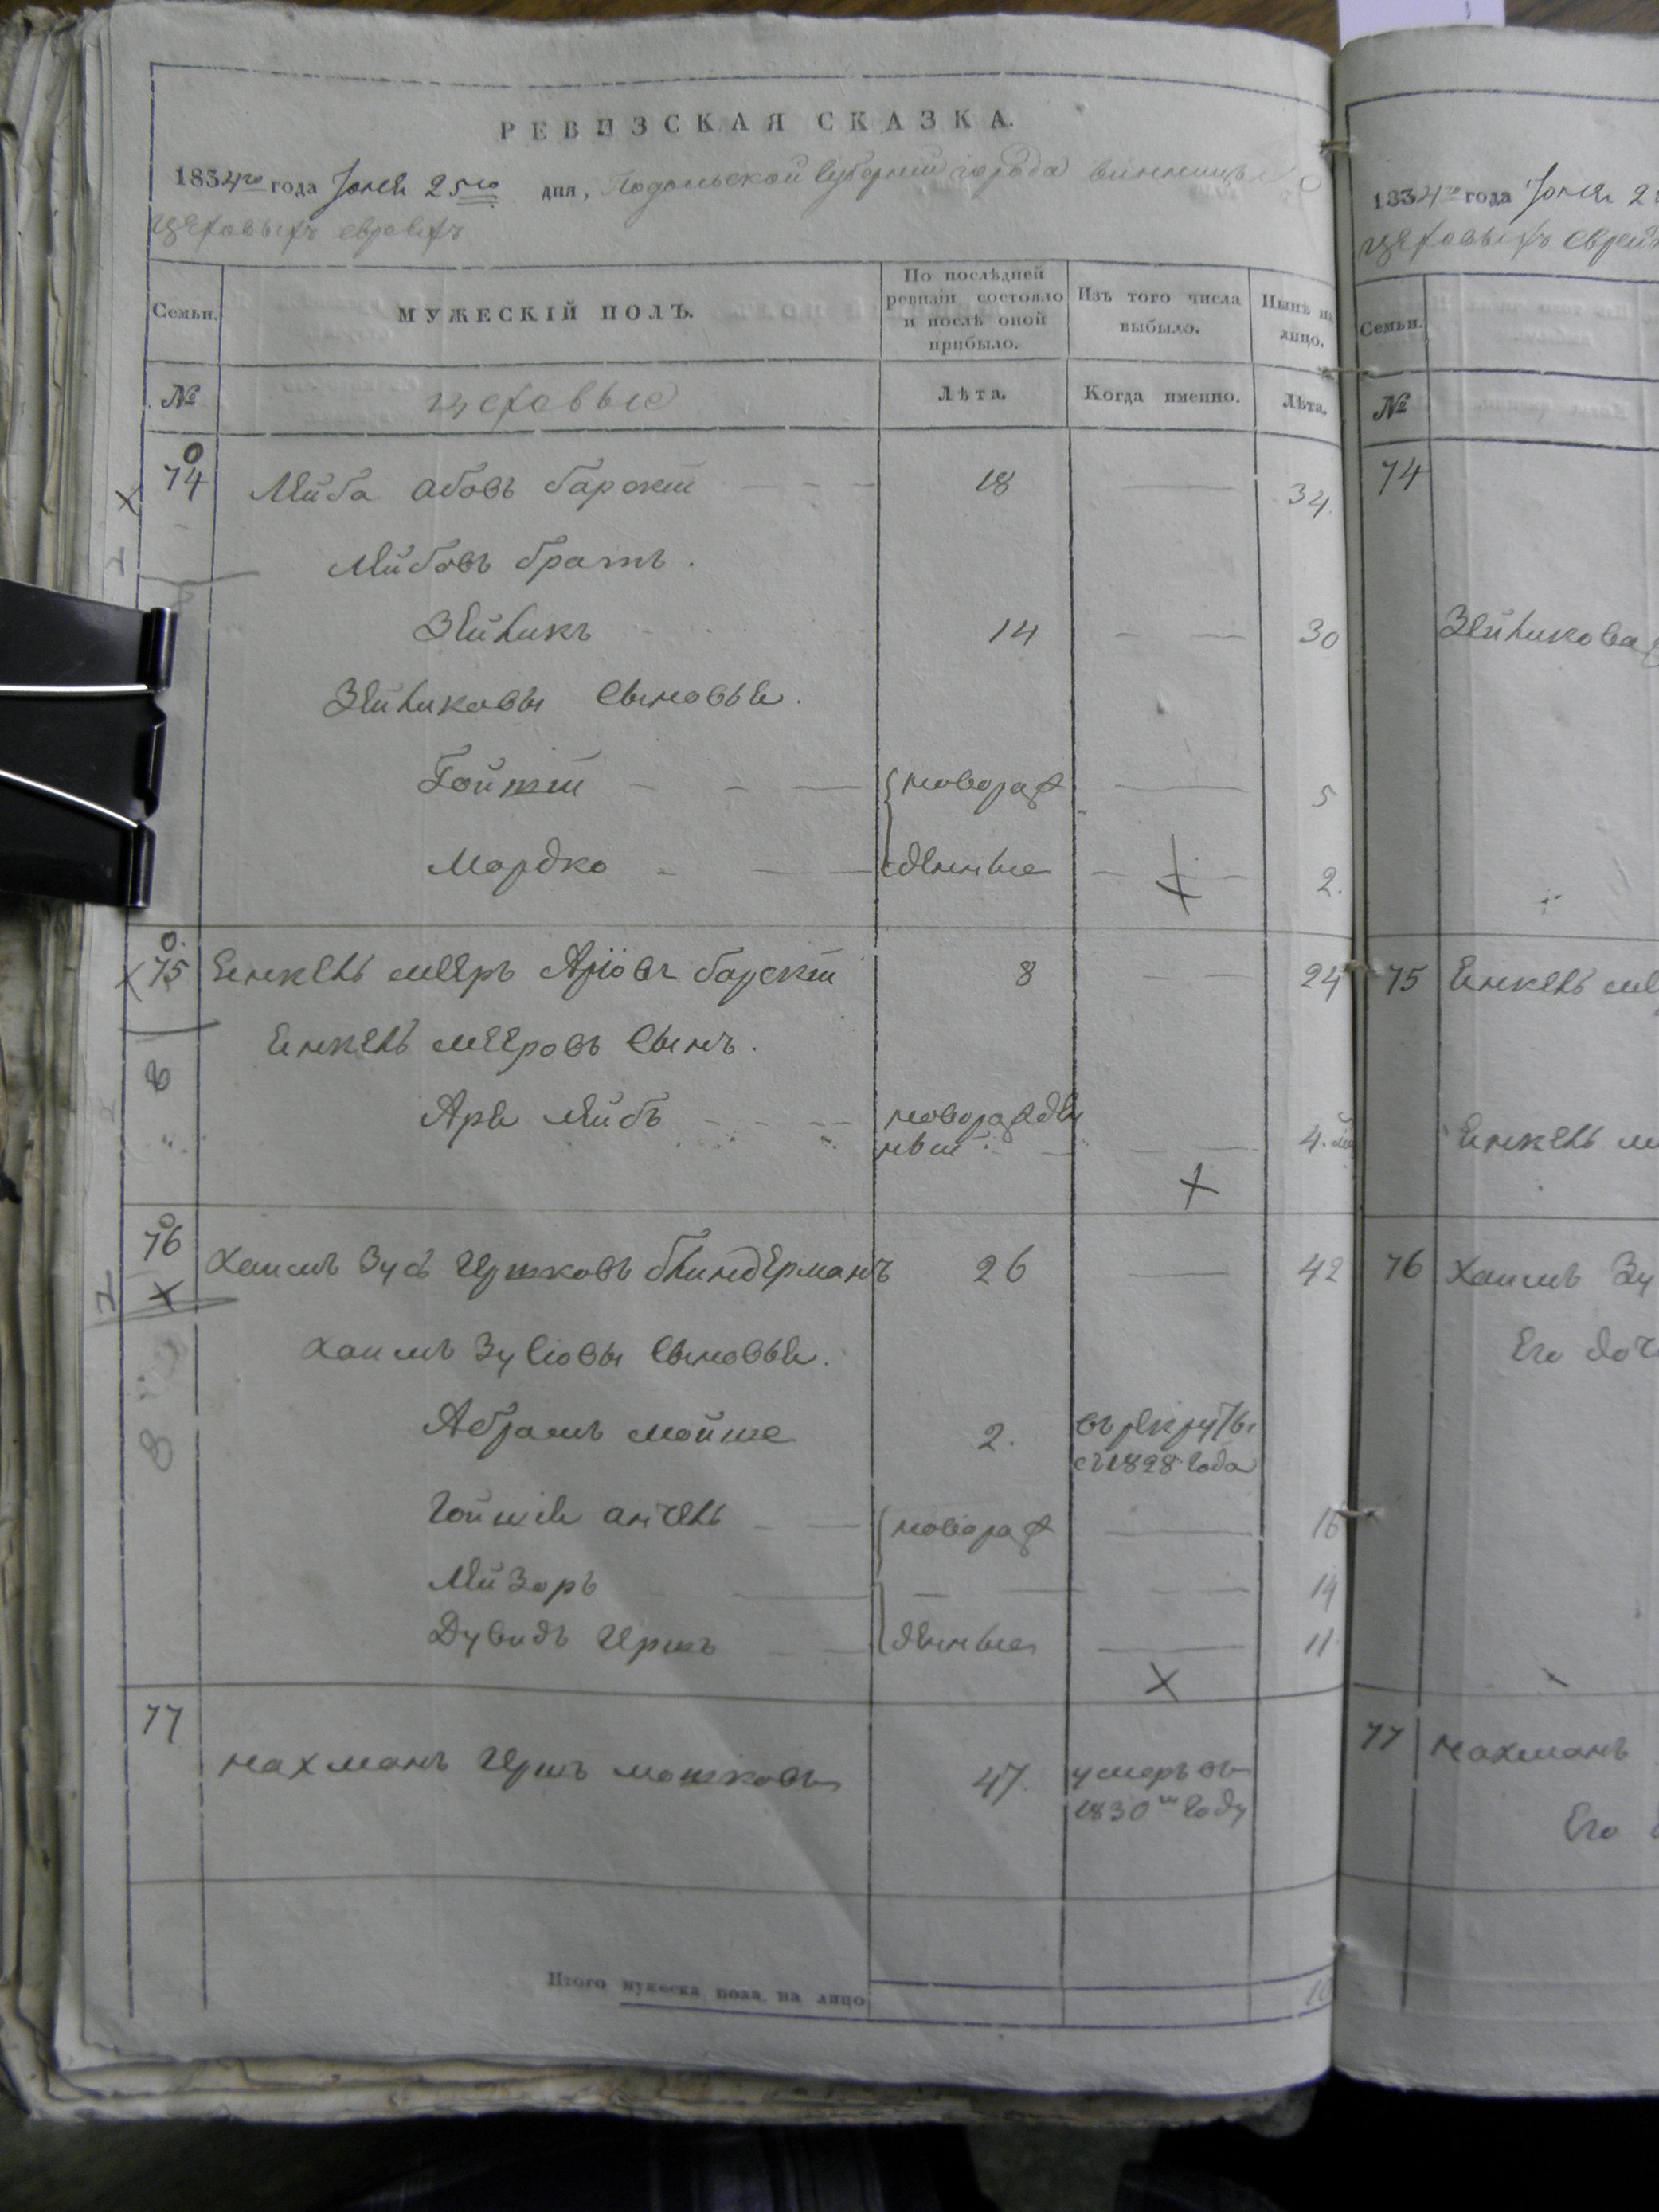 РЕВИЗСКАЯ СКАЗКА.
1834го года Іюня 25го дня, Подольской Губерніи города винницы
цеховыхъ евреевъ
Семьи. МУЖЕСКІЙ ПОЛЪ. По послѣдней ревизіи состояло и послѣ оной прибыло. Изъ того числа выбыло. Нынѣ на лицо.
№ цеховые Лѣта. Когда именно. Лѣта.
74 Лейба Абовъ барскій 18 34.
Лейбовъ братъ.
Зейликъ 14 30
Зейликовы Сыновья.
Гойжій новорож 5
Мордко денные 2.
75 Янкель мееръ Аріовъ барскій 8 24
Янкель мееровъ Сынъ.
Арія лейбъ новорожден
ный 4.
76 Хаимъ Зусь Иршковъ блиндерманъ 26 42
Хаимъ Зусіовы Сыновья.
Абрамъ мойше 2. въ рекруты
съ 1828 Года
анчель новорож 16
Лейзоръ 14
Дувидъ Иршъ денные 11
77 нахманъ Иршъ мошковъ 47. умеръ въ
1830мъ Году
Итого мужеска пола на лицо 10
1834го года Іюня 2
цеховыхъ еврей
Семьи.
№
74
Зейликова
75 Янкель ме
Янкель м
76 Хаимъ Зу
Его доч
77 нахманъ
Его